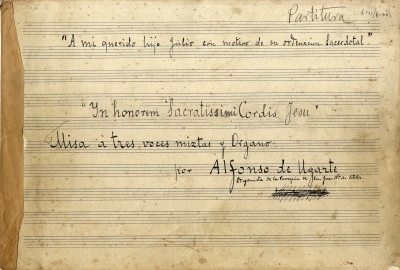 Partitura
"A mi querido hijo Julio con motivo de su ordenacion Sacerdotal"
"In honorem Sacratissimi Cordis Jesu"
Misa á tres voces mixtas y Organo
por Alfonso de Ugarte
Organista de la Parroquia de San Juan